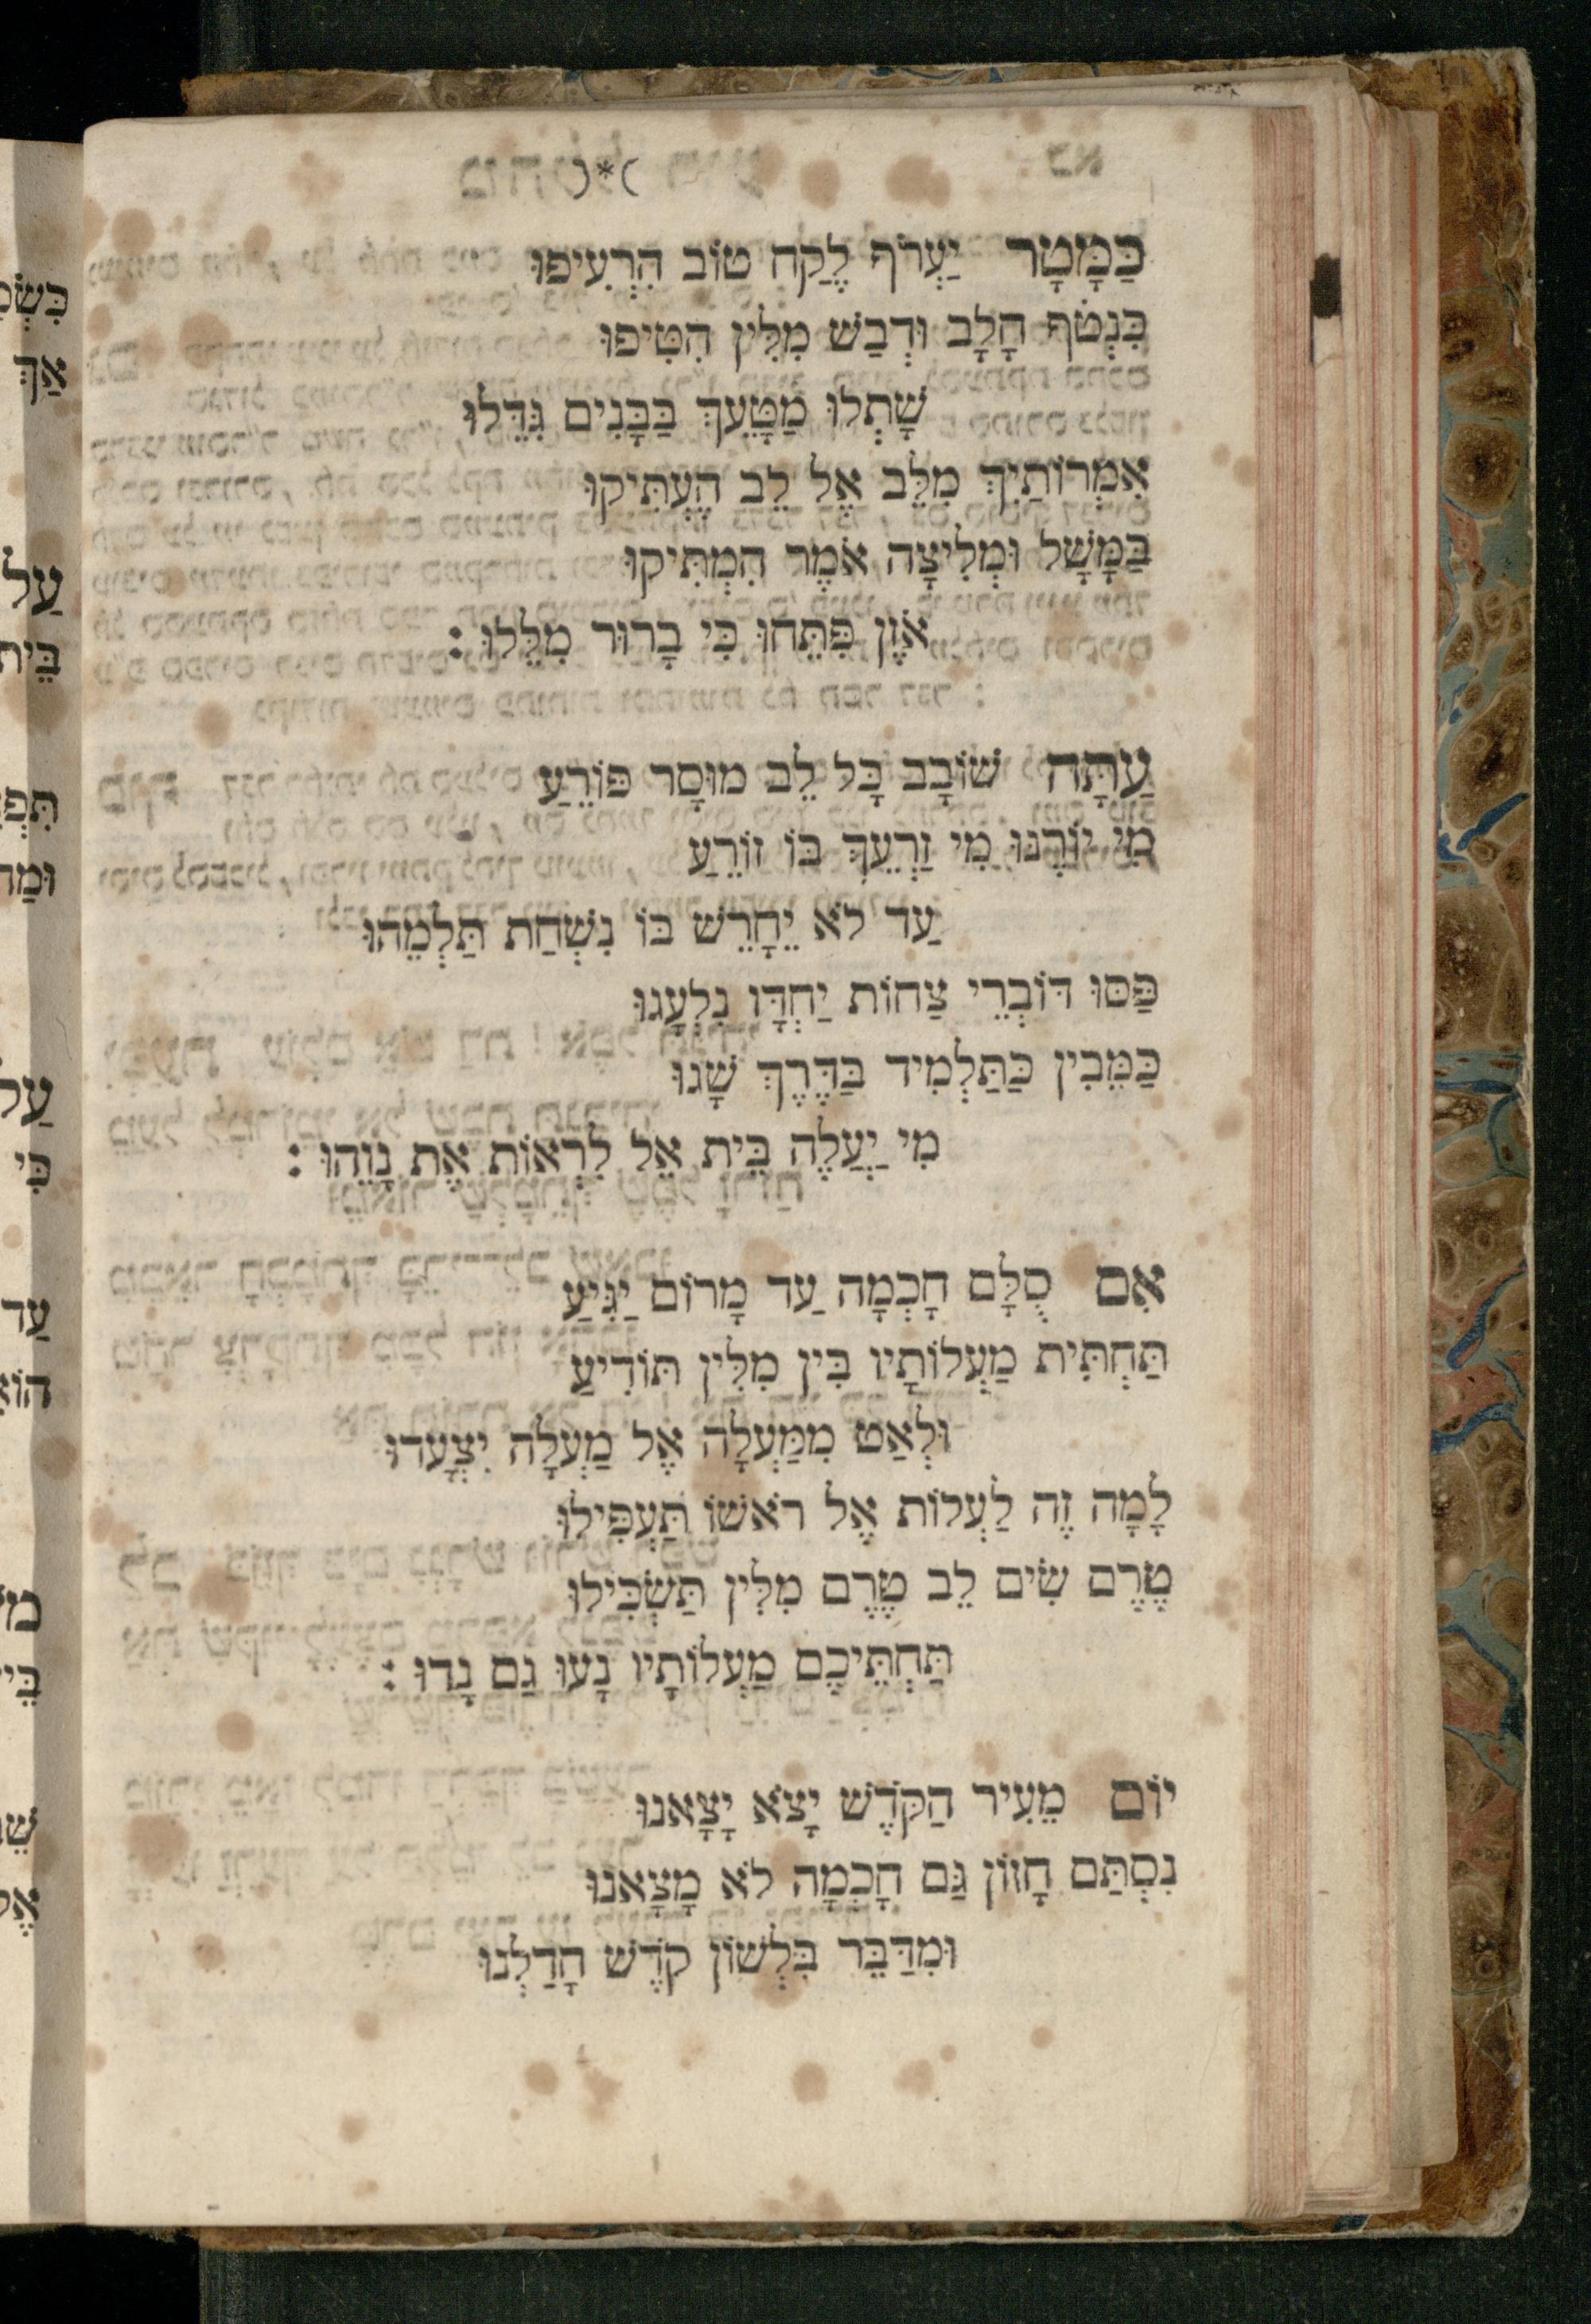 )*(
כַּמָּטָר יַעְרֹף לֶקַח טוֹב הִרְעִיפוּ
כִּנְטֹף חָלָב וּדְבַשׁ מִלִּין הִטִּיפוּ
שָׁתְלוּ מַטָּעֵךְ בַּבָּנִים גִּדֵּלוּ
אִמְרוֹתַיִךְ מִלֵּב אֶל לֵב הֶעְתִּיקוּ
בַּמָּשָׁל וּמְלִיצָה אֹמֶר הִמְתִּיקוּ
אֹזֶן פִּתֵּחוּ כִּי בָרוּר מִלֵּלוּ :
עַתָּה שׁוֹבָב כָּל לֵב מוּסָר פּוֹרֵעַ
מִי יוֹרֶנּוּ מִי זַרְעֵךְ בּוֹ זוֹרֵעַ
עַד לֹא יֵחָרֵשׁ בּוֹ נִשְׁחַת תַּלְמֵהוּ
פַּסּוּ דוֹבְרֵי צַחוֹת יַחְדָּו נִלְעָגוּ
כַּמֵּבִין כַּתַּלְמִיד בַּדֶּרֶךְ שָׁגוּ
מִי יַעֲלֶה בֵּית אֵל לִרְאוֹת אֶת נָוֵהוּ :
אִם סֻלָּם חָכְמָה עַד מָרוֹם יַגִּיעַ
תַּחְתִּית מַעְלוֹתָיו בִּין מִלִּין תּוֹדִיעַ
וּלְאַט מִמַּעְלָה אֶל מַעְלָה יִצְעָדוּ
לָמָה זֶה לַעְלוֹת אֶל רֹאשׁוֹ תַּעְפִּילוּ
טֶרֶם שִׂים לֵב טֶרֶם מִלִּין תַּשְׂכִּילוּ
תַּחְתֵּיכֶם מַעְלוֹתָיו נָעוּ גַם נָדוּ :
יוֹם מֵעִיר הַקֹּדֶשׁ יָצֹא יָצָאנוּ
נִסְתַּם חָזוֹן גַּם חָכְמָה לֹא מָצָאנוּ
וּמִדַּבֵּר בִּלְשׁוֹן קֹדֶשׁ חָדַלְנוּ